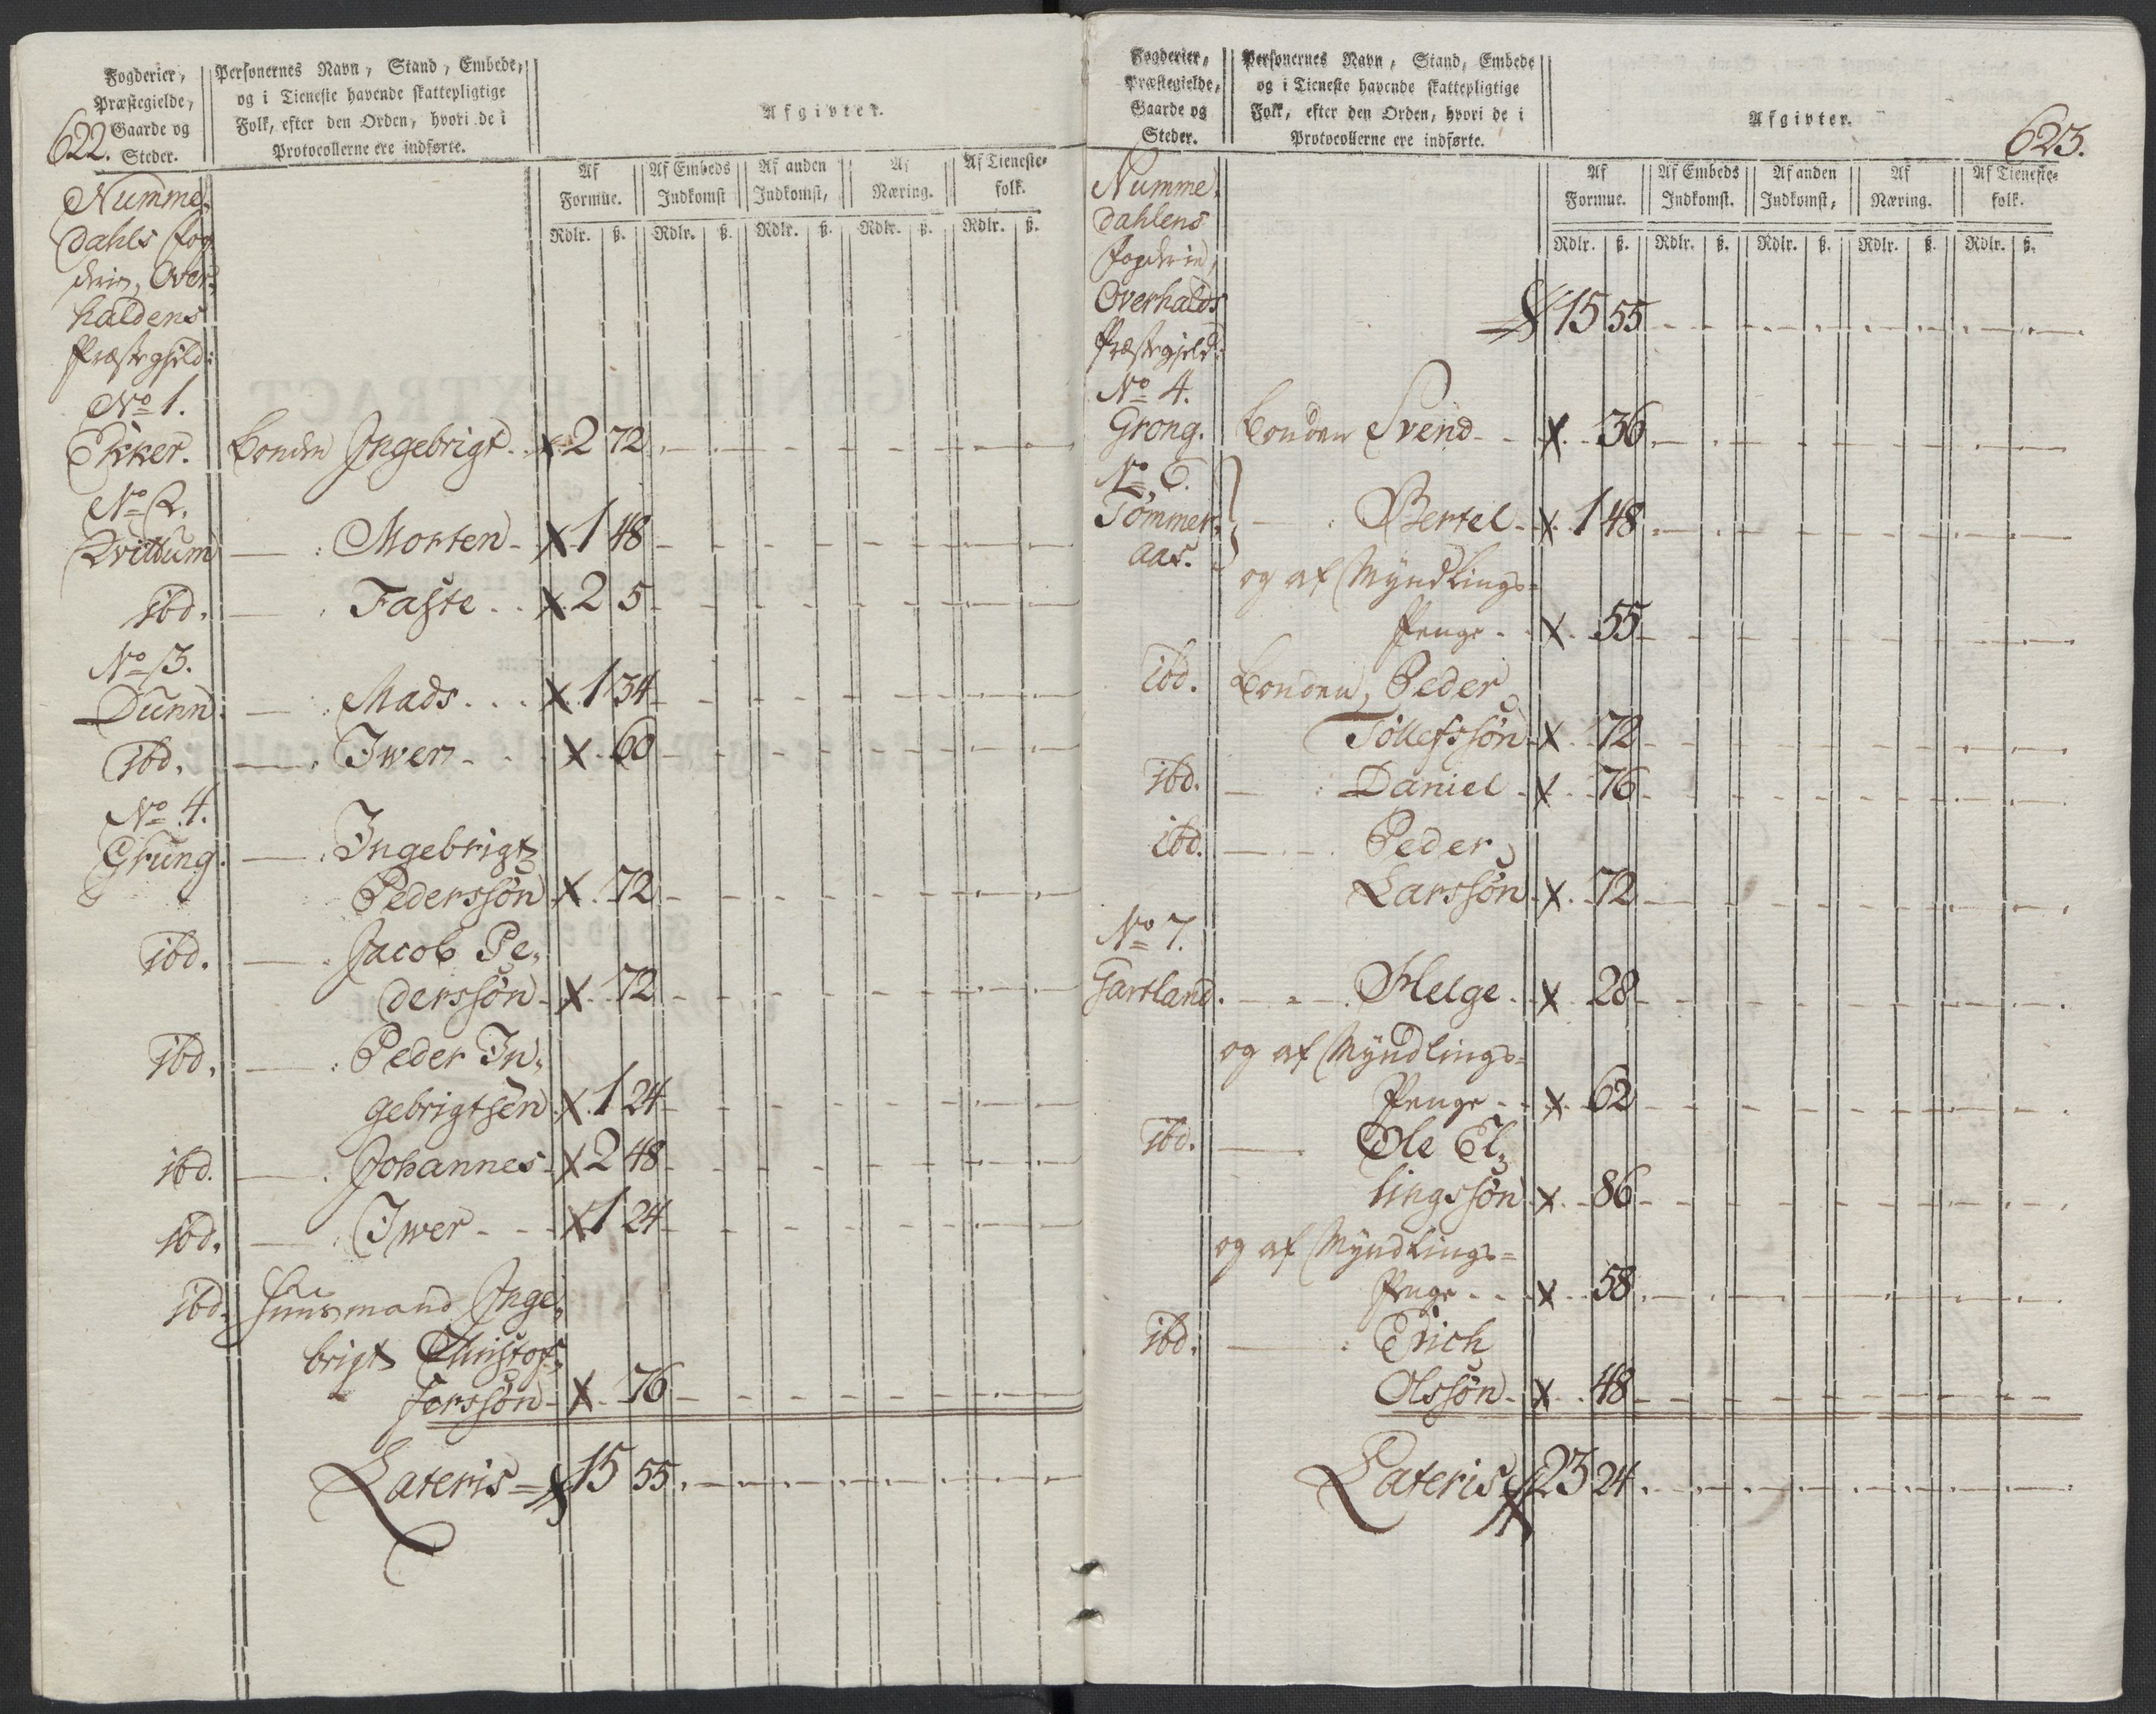 622.
Fogderier,
Præstegielde,
Gaarde og
Steder.
Personernes Navn, Stand, Embede,
og i Tieneste havende skattepligtige
Folk, efter den Orden, hvori de i
Protocollerne ere indførte.
Afgivter.
Af Formue. Af Embeds Indkomst Af anden Indkomst, Af Næring. Af Tieneste- folk.
Rdlr. ß. Rdlr. ß. Rdlr. ß. Rdlr. ß. Rdlr. ß.
Numme-
dahls Fog
derie, Over-
haldens
Præstegjeld:
No 1.
Ekker. Bonden Ingebrigt X 2 72
No 2.
Qvittum — : Morten X 1 48
ibd. — : Faste X 2 5
No 3.
Dunn. — : Mads X 1 34
ibd. — : Iwer X 60
No 4.
Grung. — : Ingebrigt
Pederssøn X 72
ibd. — : Jacob Pe-
derssøn X 72
ibd. — : Peder In-
gebrigtsen X 1 24
ibd. — : Johannes X 2 48
ibd. — : Iwer X 1 24
ibd. Huusmand Inge-
brigt Christof-
ferssøn X 76
Lateris 15 55
623.
Fogderier,
Præstegielde,
Gaarde og
Steder.
Personernes Navn, Stand, Embede
og i Tieneste havende skattepligtige
Folk, efter den Orden, hvori de i
Protocollerne ere indførte.
Afgivter.
Af Formue. Af Embeds Indkomst. Af anden Indkomst, Af Næring. Af Tieneste- folk.
Rdlr. ß. Rdlr. ß. Rdlr. ß. Rdlr. ß. Rdlr. ß.
Numme-
dahlens
Fogderie,
Overhalds 15 55
Præstegjeld:
No 4.
Grong. Bonden Svend X 36
No 6.
Tømmer- — : Bertel X 1 48
aas.
og af Myndlings-
Penge X 55
ibd. Bonden, Peder
Tøllefssøn X 72
ibd. — : Daniel X 76
ibd. — Peder
Larssøn X 72
No 7.
Gartland. — Helge X 28
og af Myndlings-
Penge X 62
ibd. — Ole El-
lingssøn X 86
og af Myndlings-
Penge X 58
ibd. — : Erich
Olssøn X 48
Lateris 23 24